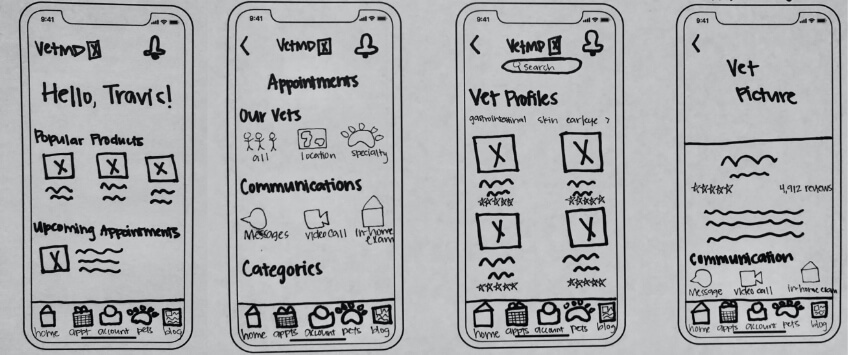 9:41
VetMD X
Hello, Travis!
Popular Products
X X X
Upcoming Appointments
X
home appt account pets blog
9:41
VetMD X
Appointments
Our Vets
all location specialty
Communications
Messages video call In-home exam
Categories
home appts account pets blog
9:41
VetMD X
search
Vet Profiles
gastrointestinal skin ear/eye >
X X
X X
home appts account pets blog
9:41
Vet
Picture
4,912 reviews
Communication
Message video call In-home exam
home appts account pets blog